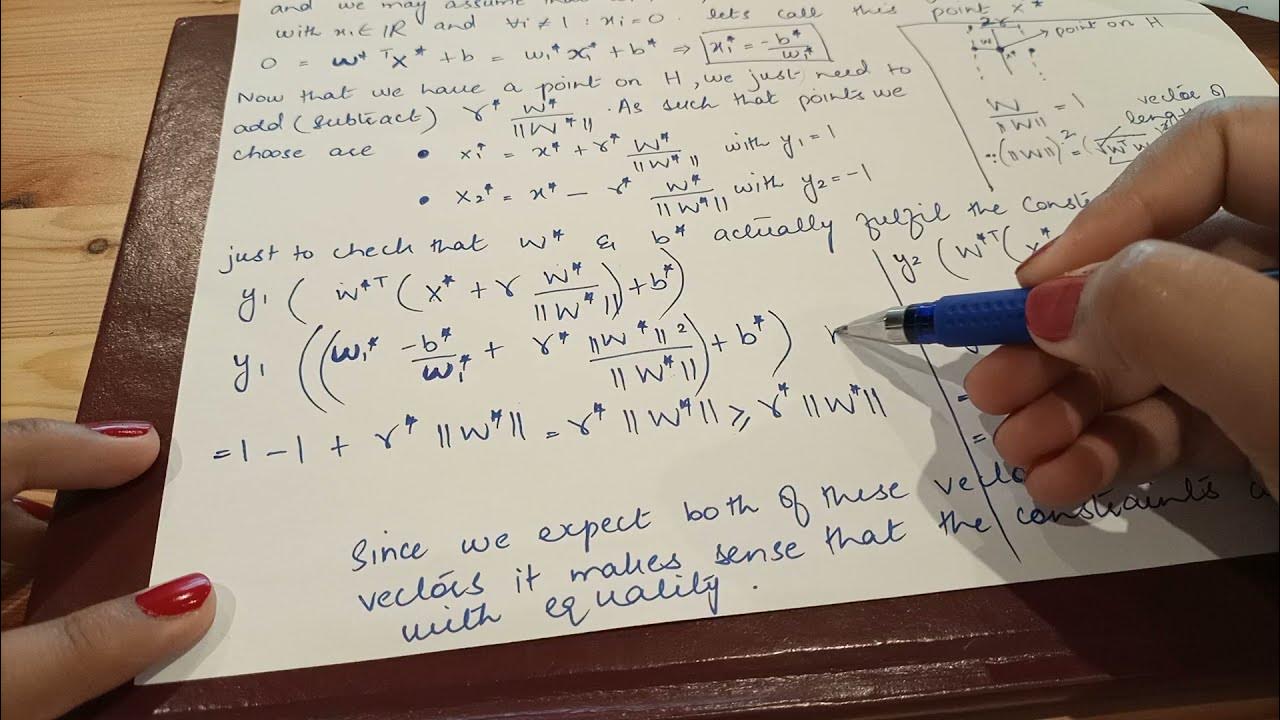 and we may assume that
with xi ∈ IR and ∀i ≠ 1 : xi = 0. lets call this point x*
0 = w*ᵀx* + b = w₁* x₁* + b* ⇒ x₁* = -b*/w₁*
Now that we have a point on H, we just need to
add (subtract) r* w*/||w*||. As such that points we
choose are • x₁* = x* + r* w*/||w*|| with y₁ = 1
• x₂* = x* - r* w*/||w*|| with y₂ = -1
just to check that w* & b* actually fulfil the
y₁ ( w*ᵀ ( x* + r w*/||w*|| ) + b* )
y₁ (( w₁* -b*/w₁* + r* ||w*||²/||w*|| ) + b* )
= 1 - 1 + r* ||w*|| = r* ||w*|| ≥ r* ||w*||
Since we expect both of these
vectors it makes sense that the constraints
with equality.
2r
point on H
w
w/||w|| = 1
vector of
length
∵ (||w||)² =
y₂ ( w*ᵀ ( x*
=
=